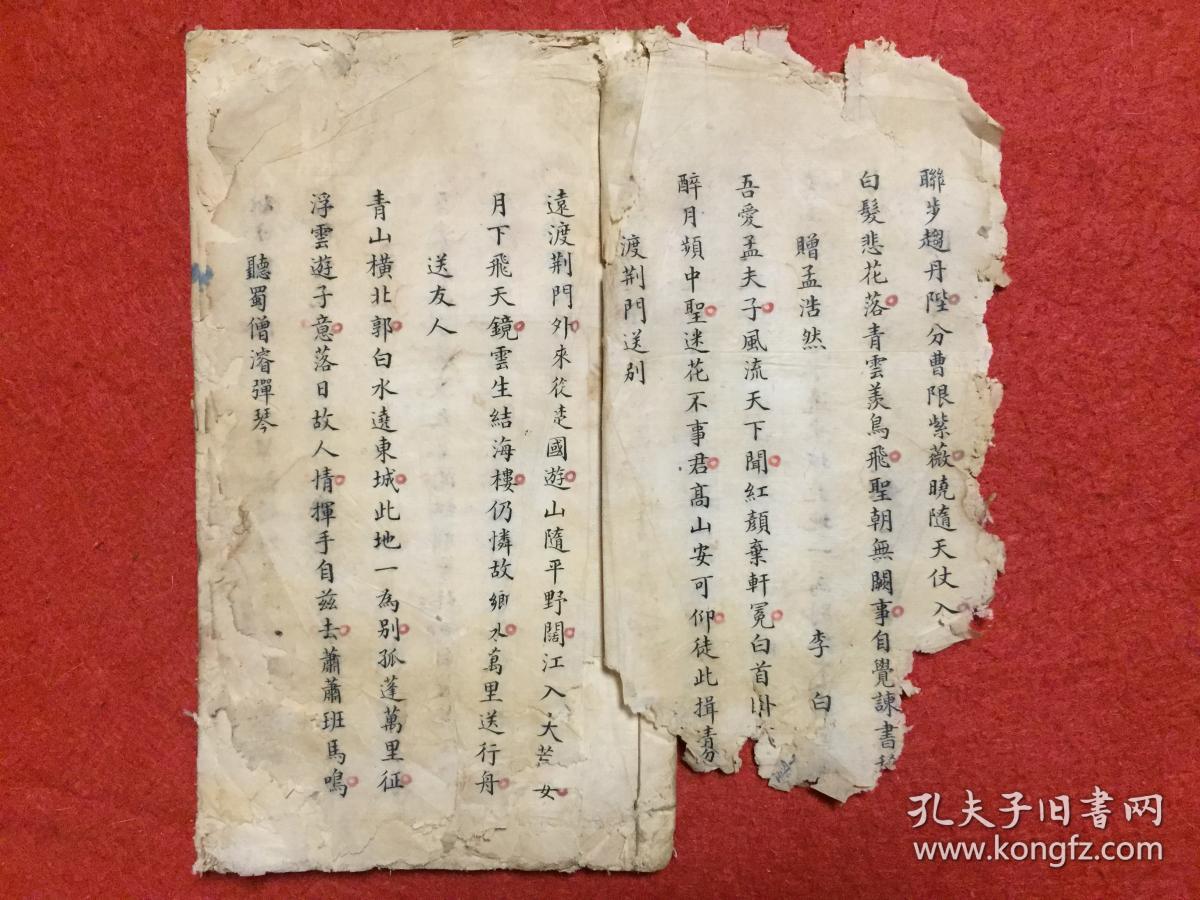 聯步趨丹陛分曹限紫薇曉隨天仗入
白髮悲花落青雲羨鳥飛聖朝無闕事自覺諫書
贈孟浩然 李白
吾愛孟夫子風流天下聞紅顏棄軒冕白首臥
醉月頻中聖迷花不事君髙山安可仰徒此揖清芬
渡荆門送别
遠渡荆門外來從楚國遊山隨平野闊江入大荒女
月下飛天鏡雲生結海樓仍憐故鄉水萬里送行舟
送友人
青山橫北郭白水遶東城此地一為别孤蓬萬里征
浮雲遊子意落日故人情揮手自兹去蕭蕭班馬鳴
聽蜀僧濬彈琴
孔夫子旧书网
www.kongfz.com